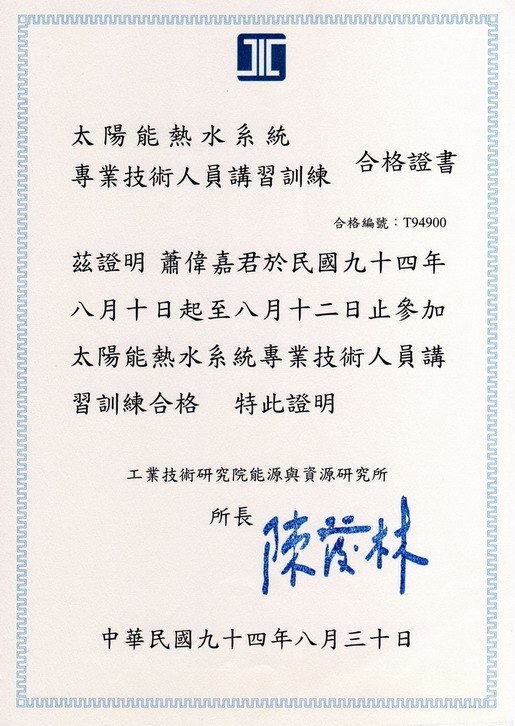 太陽能熱水系統
專業技術人員講習訓練 合格證書
合格編號：T94900
茲證明 蕭偉嘉君於民國九十四年
八月十日起至八月十二日止參加
太陽能熱水系統專業技術人員講
習訓練合格 特此證明
工業技術研究院能源與資源研究所
所長 陳茂林
中華民國九十四年八月三十日